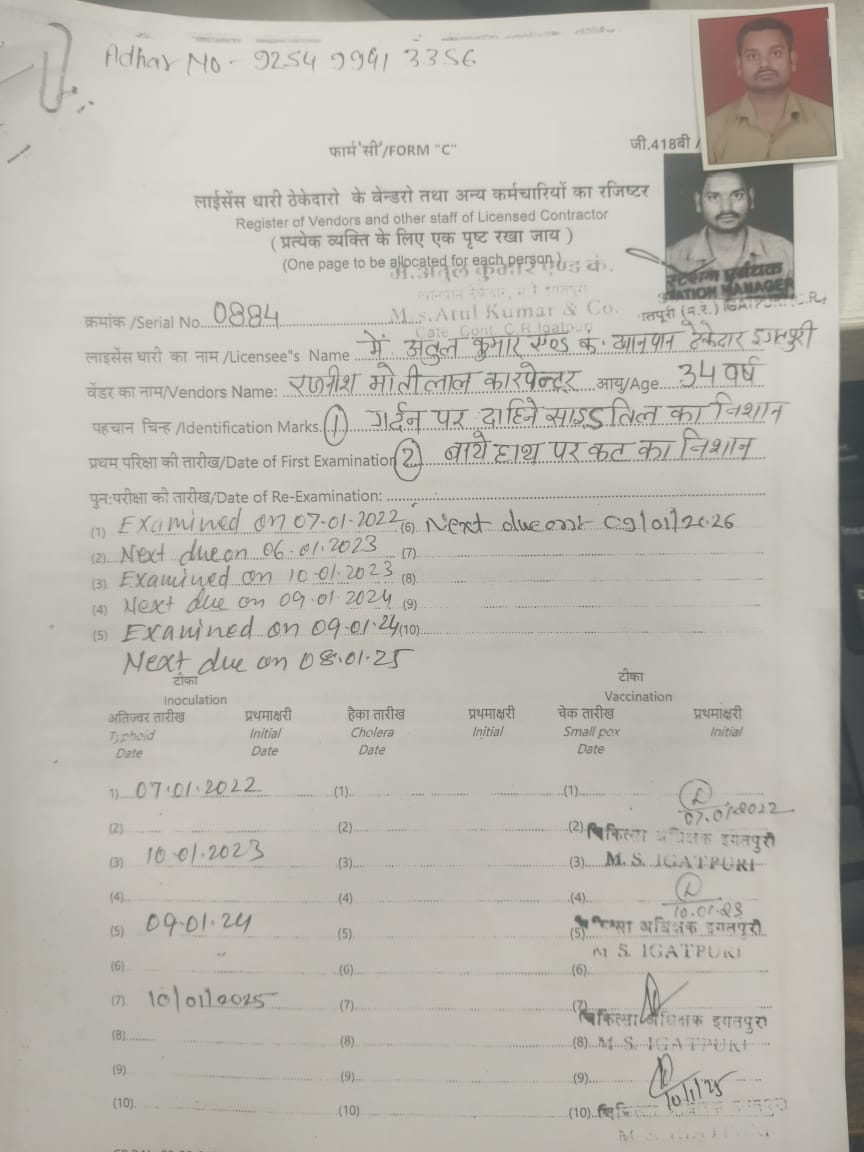 Adhar No - 9254 9941 3356
फार्म 'सी'/FORM "C"
जी.418बी /
लाईसेंस धारी ठेकेदारो के वेन्डरो तथा अन्य कर्मचारियों का रजिष्टर
Register of Vendors and other staff of Licensed Contractor
( प्रत्येक व्यक्ति के लिए एक पृष्ट रखा जाय )
(One page to be allocated for each person)
मे.अतुल कुमार एण्ड कं.
STATION MANAGER
क्रमांक /Serial No. 0884
M.s.Atul Kumar & Co.
Cate. Cont. C.R.Igatpuri
लाइसेंस धारी का नाम /Licensee"s Name में अतुल कुमार एण्ड कं. खानपान ठेकेदार इगतपुरी
वेंडर का नाम/Vendors Name: रजनीश मोतीलाल कारपेन्टर आयु/Age 34 वर्ष
पहचान चिन्ह /Identification Marks. (1) गर्दन पर दाहिने साइड तिल का निशान
प्रथम परिक्षा की तारीख/Date of First Examination (2) बाये हाथ पर कट का निशान
पुन:परीक्षा की तारीख/Date of Re-Examination:
(1) Examined on 07-01-2022 (6) Next due on 09/01/2026
(2) Next due on 06.01.2023 (7)
(3) Examined on 10-01-2023 (8)
(4) Next due on 09.01.2024 (9)
(5) Examined on 09-01-24 (10)
Next due on 08.01.25
टीका टीका
Inoculation Vaccination
अतिज्वर तारीख प्रथमाक्षरी हैका तारीख प्रथमाक्षरी चेक तारीख प्रथमाक्षरी
Typhoid Initial Cholera Initial Small pox Initial
Date Date Date Date
1) 07.01.2022 (1) (1)
07.01.2022
(2) (2) (2) चिकित्सा अधिक्षक इगतपुरी
(3) 10-01-2023 (3) (3) M. S. IGATPURI
(4) (4) (4)
10.01.23
(5) 09-01-24 (5) (5) चिकित्सा अधिक्षक इगतपुरी
M S. IGATPURI
(6) (6) (6)
(7) 10/01/2025 (7) (7)
चिकित्सा अधिक्षक इगतपुरी
(8) (8) (8) M. S. IGATPURI
(9) (9) (9)
10/1/25
(10) (10) (10)